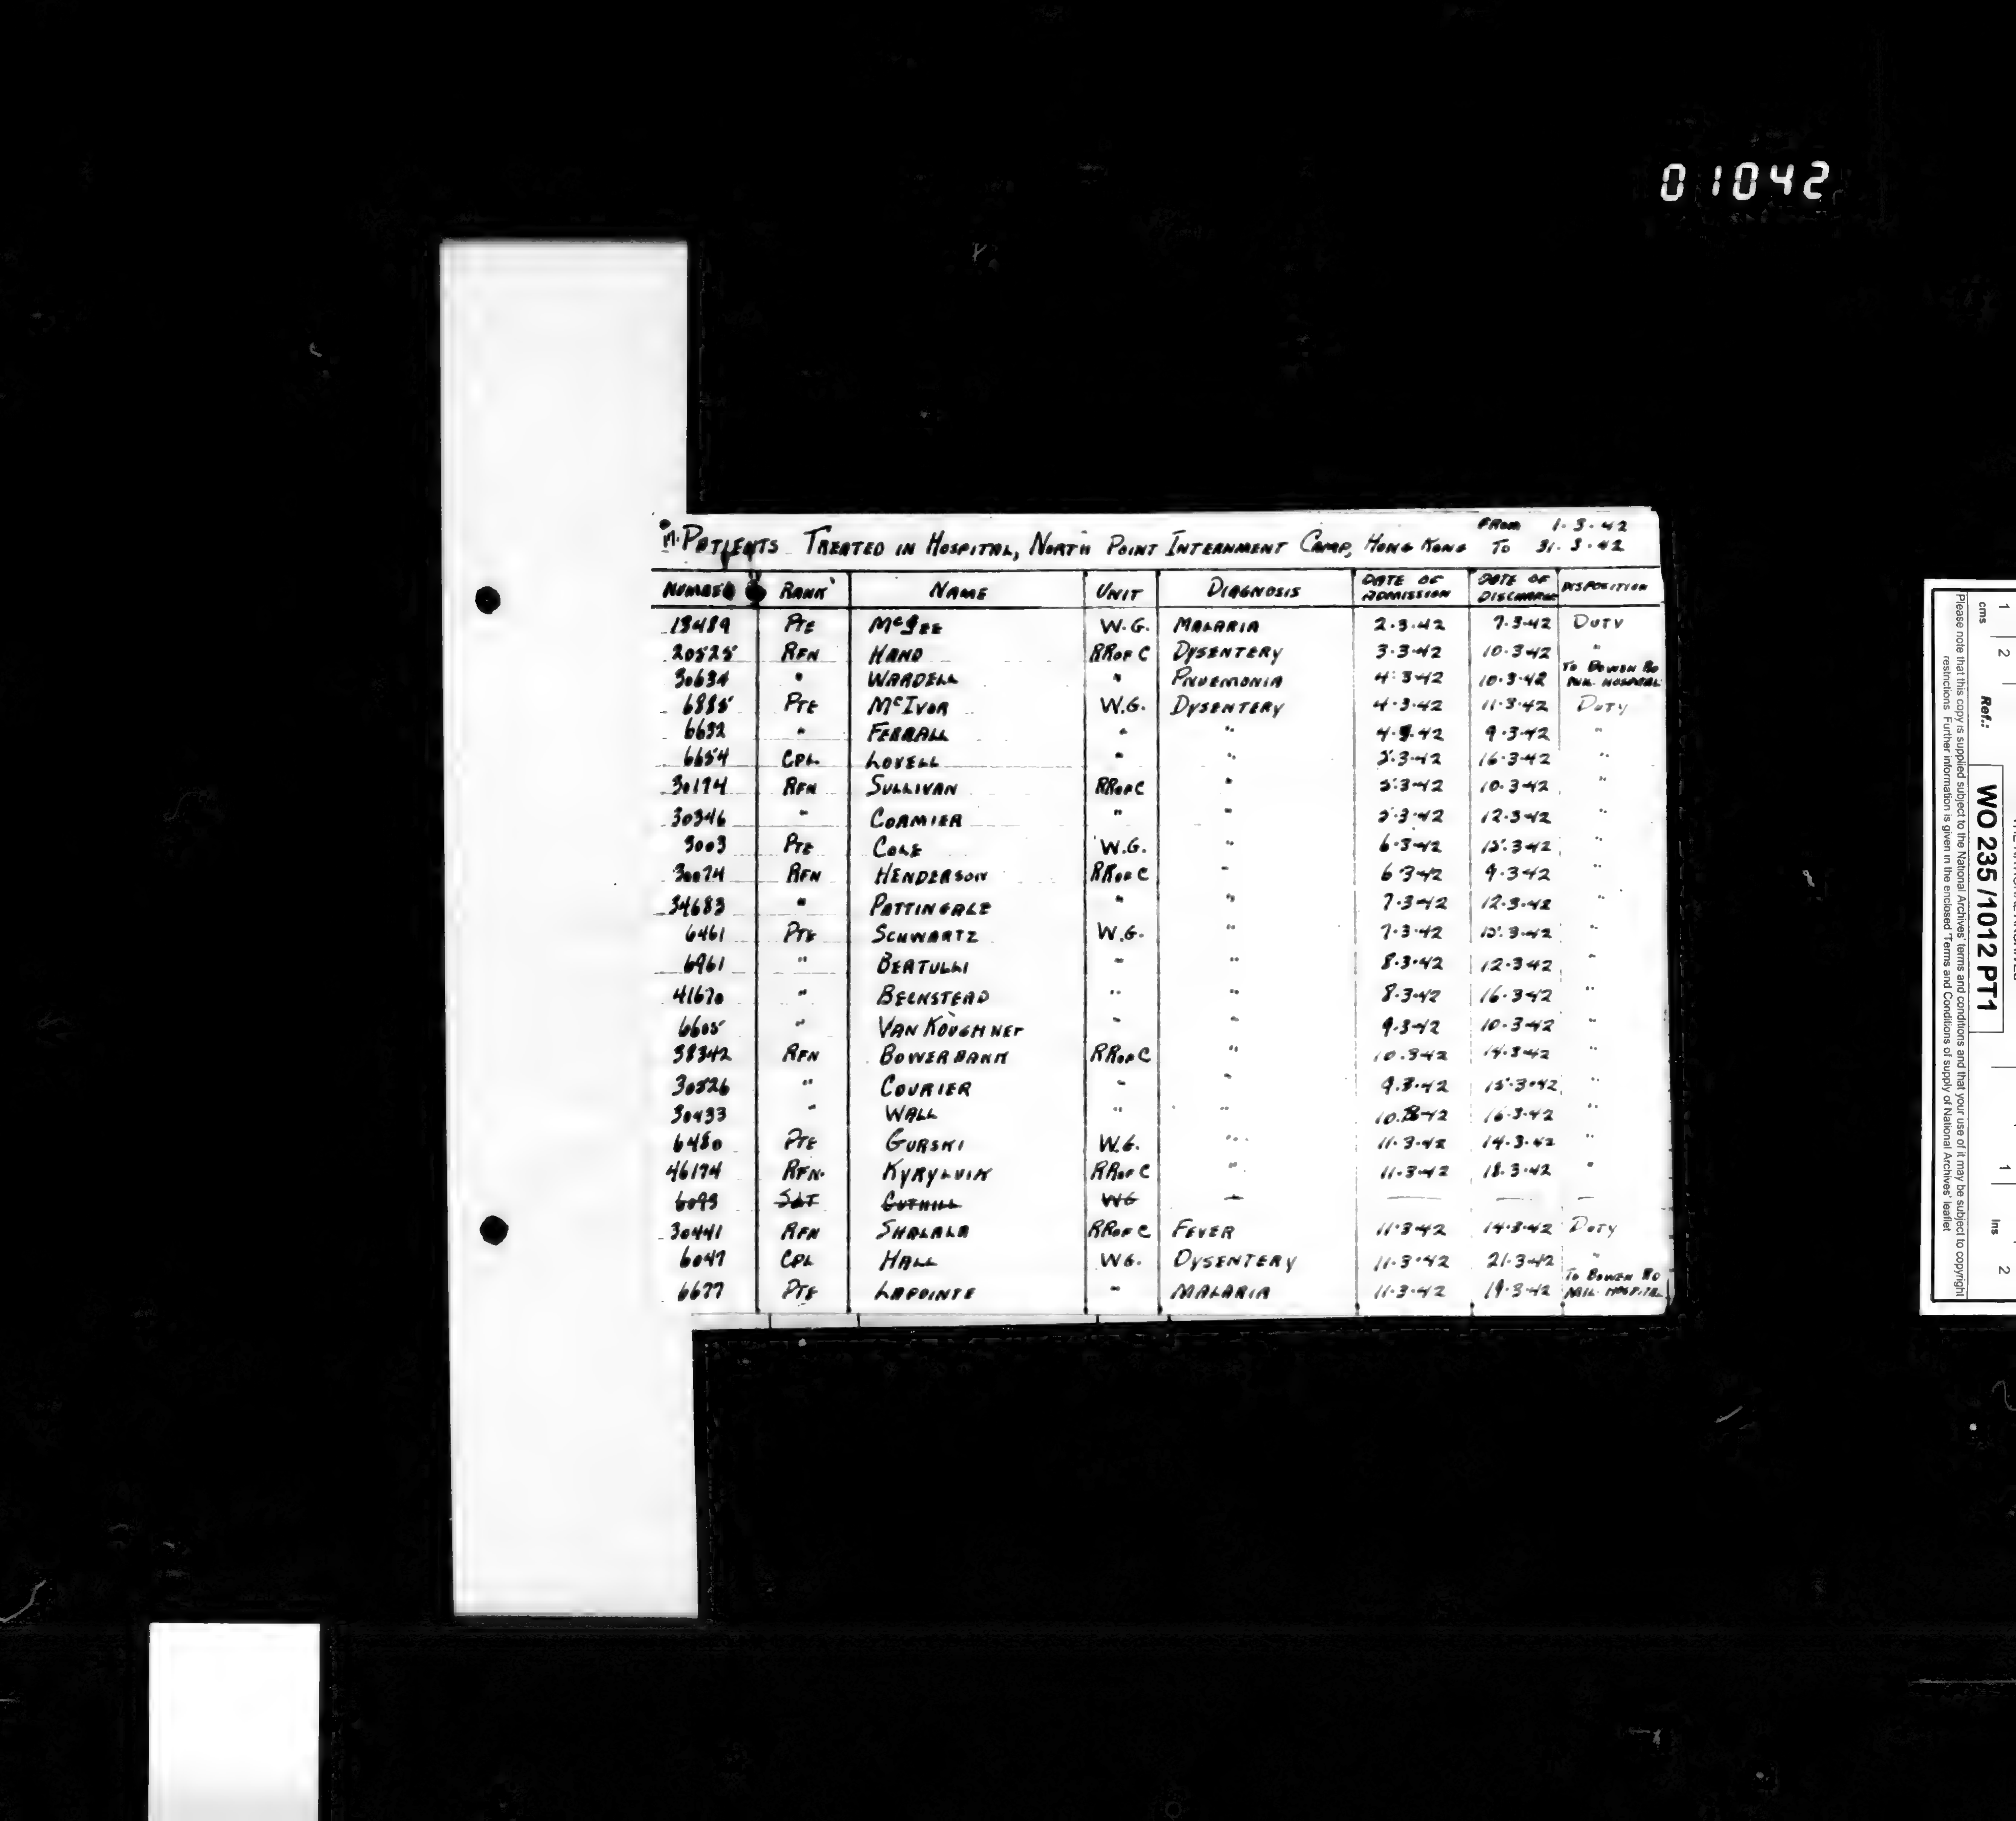 01042
PATIENTS TREATED IN HOSPITAL, NORTH POINT INTERNMENT CAMP, HONG KONG FROM 1.3.42 TO 31.3.42
NUMBER RANK NAME UNIT DIAGNOSIS DATE OF ADMISSION DATE OF DISCHARGE DISPOSITION
13489 PTE McGEE W.G. MALARIA 2.3.42 7.3.42 DUTY
20525 RFN HAND RRofC DYSENTERY 3.3.42 10.3.42 "
30634 " WARDELL " PNUEMONIA 4.3.42 10.3.42 TO BOWEN RD MIL. HOSPITAL
6885 PTE McIVOR W.G. DYSENTERY 4.3.42 11.3.42 DUTY
6632 " FERRALL " " 4.3.42 9.3.42 "
6654 CPL. LOVELL " " 5.3.42 16.3.42 "
30174 RFN SULLIVAN RRofC " 5.3.42 10.3.42 "
30346 " CORMIER " " 5.3.42 12.3.42 "
3003 PTE COLE W.G. " 6.3.42 15.3.42 "
30074 RFN HENDERSON RRofC " 6.3.42 9.3.42 "
34683 " PATTINGALE " " 7.3.42 12.3.42 "
6461 PTE SCHWARTZ W.G. " 7.3.42 15.3.42 "
6961 " BERTULLI " " 8.3.42 12.3.42 "
41670 " BECKSTEAD " " 8.3.42 16.3.42 "
6605 " VAN KOUGHNET " " 9.3.42 10.3.42 "
38342 RFN BOWERBANK RRofC " 10.3.42 14.3.42 "
30526 " COURIER " " 9.3.42 15.3.42 "
30433 " WALL " " 10.3.42 16.3.42 "
6480 PTE GURSKI W.G. " 11.3.42 14.3.42 "
46174 RFN. KYRYLUIK RRofC " 11.3.42 18.3.42 "
6093 SGT CUTHILL WG — — — —
30441 RFN SHALALA RRofC FEVER 11.3.42 14.3.42 DUTY
6047 CPL HALL WG. DYSENTERY 11.3.42 21.3.42 "
6677 PTE LAPOINTE " MALARIA 11.3.42 19.3.42 TO BOWEN RD MIL. HOSPITAL
cms 1 2 1 Ins 2
Ref.: WO 235 /1012 PT1
Please note that this copy is supplied subject to the National Archives' terms and conditions and that your use of it may be subject to copyright
restrictions. Further information is given in the enclosed 'Terms and Conditions of supply of National Archives' leaflet